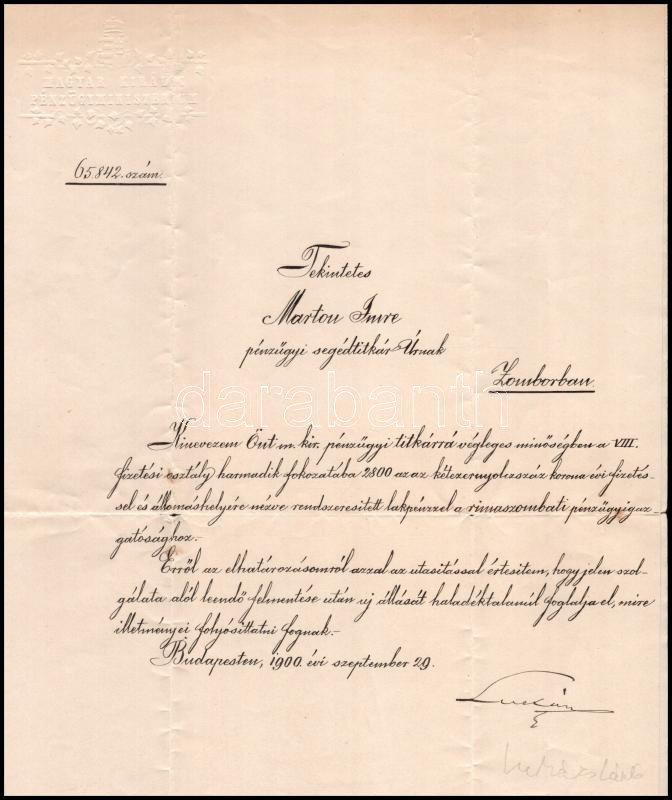 MAGYAR KIRÁLYI
PÉNZÜGYMINISZTERIUM
65.842. szám.
Tekintetes
Marton Imre
pénzügyi segédtitkár Úrnak
Zomborban.
Kinevezem Önt m. kir. pénzügyi titkárrá végleges minőségben a VIII.
fizetési osztály harmadik fokozatába 2800 azaz kétezernyolczszáz korona évi fizetés-
sel és állomáshelyére nézve rendszeresitett lakpénzzel a rimaszombati pénzügyigaz-
gatósághoz.-
Erről az elhatározásomról azzal az utasitással értesitem, hogy jelen szol-
gálata alól leendő felmentése után uj állását haladéktalanúl foglalja el, mire
illetményei folyósittatni fognak.-
Budapesten, 1900. évi szeptember 29.
Lukács
Lukács László
darabanth